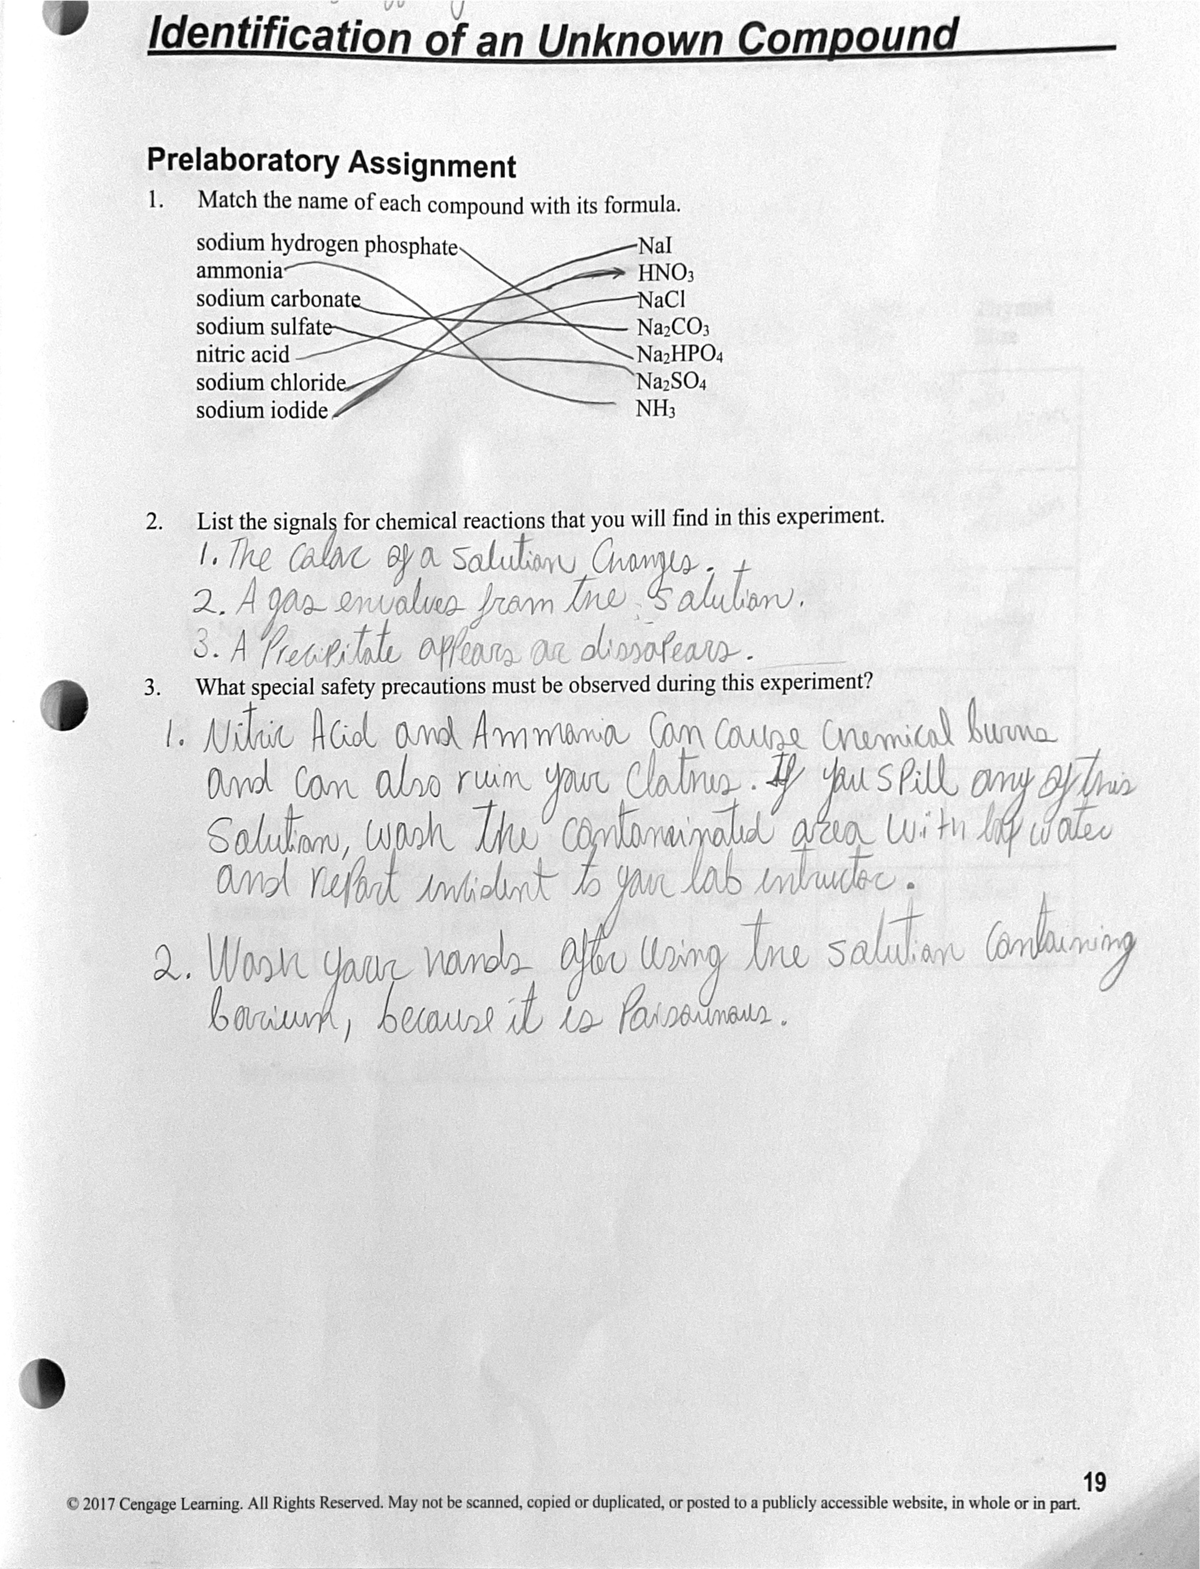 Identification of an Unknown Compound
Prelaboratory Assignment
1. Match the name of each compound with its formula.
sodium hydrogen phosphate NaI
ammonia HNO₃
sodium carbonate NaCl
sodium sulfate Na₂CO₃
nitric acid Na₂HPO₄
sodium chloride Na₂SO₄
sodium iodide NH₃
2. List the signals for chemical reactions that you will find in this experiment.
1. The Color of a Solution Changes.
2. A gas envolves from the Solution.
3. A Precipitate appears or dissapears.
3. What special safety precautions must be observed during this experiment?
1. Nitric Acid and Ammonia Can Cause Chemical burns
and can also ruin your Clothes. If you spill any of this
Solution, wash the contaminated area with tap water
and report incident to your lab intructor.
2. Wash your hands after using the solution containing
barium, because it is Poisounous.
19
© 2017 Cengage Learning. All Rights Reserved. May not be scanned, copied or duplicated, or posted to a publicly accessible website, in whole or in part.